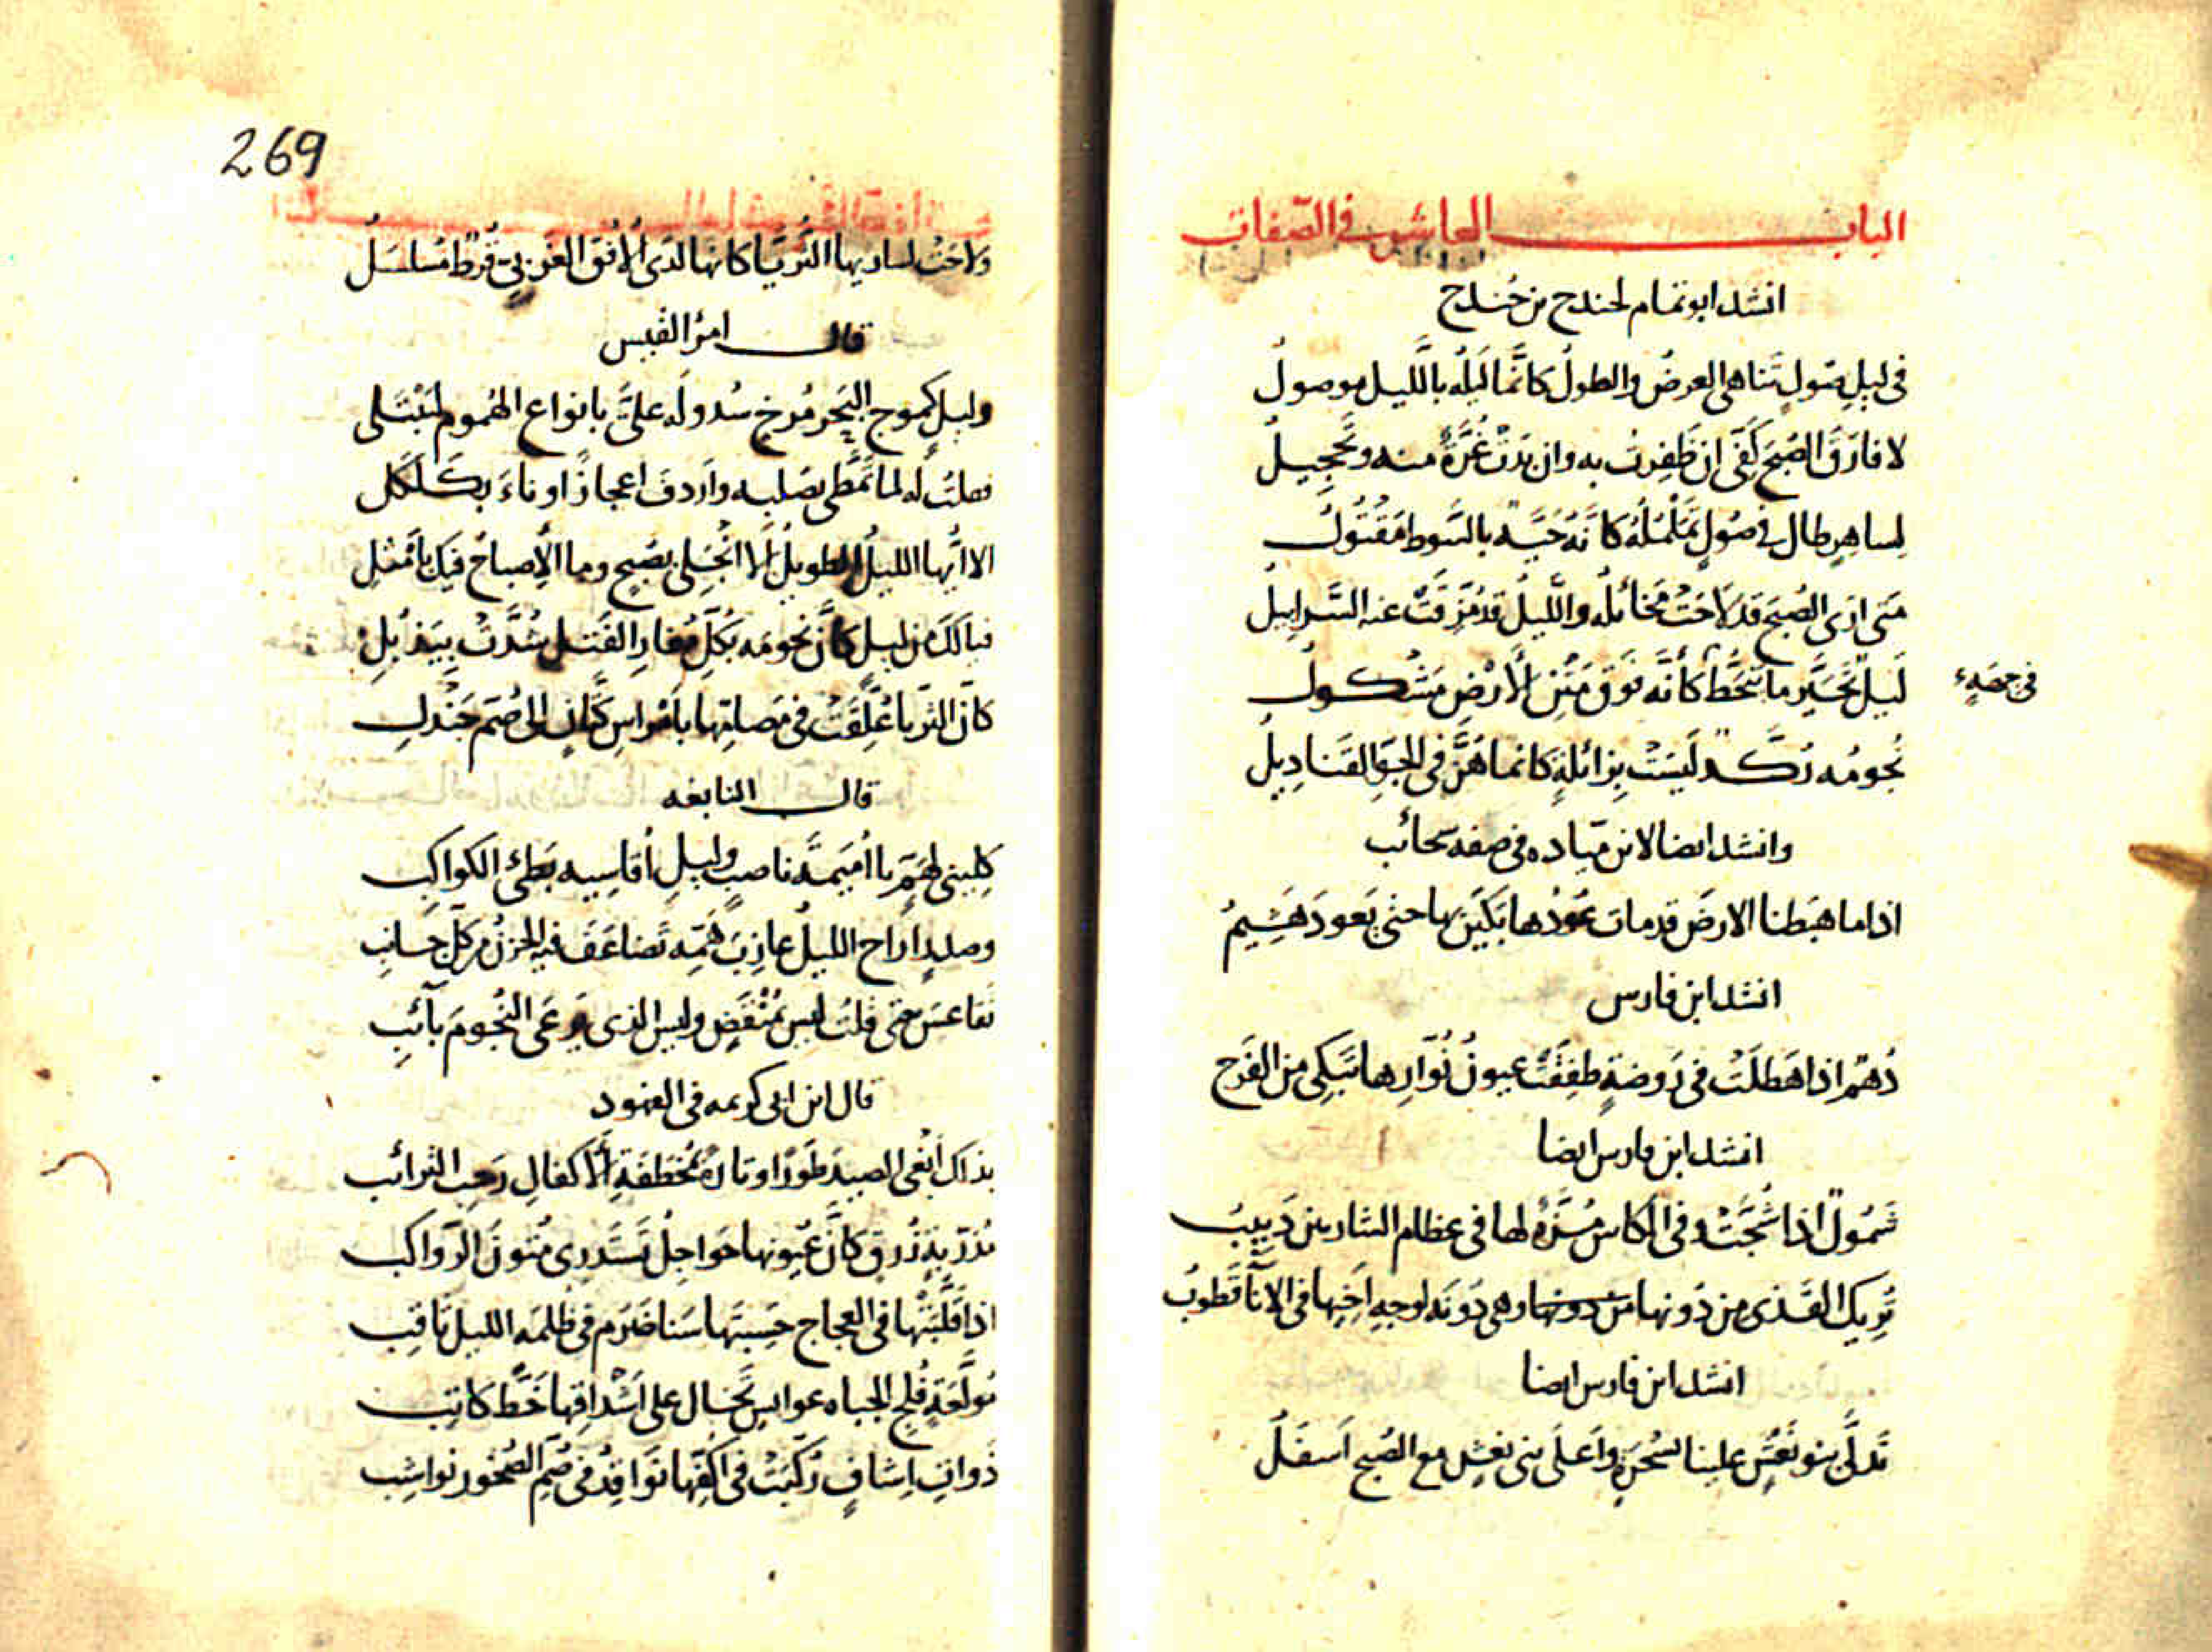 الباب العاشر في الصفات
انشد ابو تمام لحندج بن حندج
فى ليلِ صُولٍ تَناهى العرضُ والطولُ كانَّما لَيلُه باللَّيل موصولُ
لا فارَقَ الصُبحُ كَفّى ان ظَفِرتُ به وان بَدَتْ غُرَّةٌ منه وتَحجِيلُ
لساهرٍ طال فى صُولٍ تَمَلْمُلُهُ كانَّهُ حَيَّةٌ بالسَوطِ مَقتُولُ
مَتى ارَى الصُبحَ قد لاحَتْ مَخائلُه واللَّيلُ قد مُزِّقَتْ عنه السَّرابيلُ
لَيلٌ تَحَيَّر ما يَنحَطُّ كأنَّه فَوقَ مَتنِ الأرْضِ مَشكولُ
فى جهةٍ
نُجومُه رُكَّدٌ لَيسَتْ بزائلةٍ كانما هُنَّ فى الجَوِّ القَنادِيلُ
وانشد ايضا لابن ميّاده فى صفه سحائب
اذا ما هَبَطنا الارضَ قد مات عُودُها بَكَينَ بها حتى يَعودَ هَشِيمُ
انشد ابن فارس
دُهْمٌ اذا هَطَلَتْ فى رَوضةٍ طَفِقَتْ عيونُ نُوّارِها تَبكِى من الفَرَح
انشد ابن فارس ايضا
شَمُولٌ اذا شُجَّتْ وفى الكاس مُزَّةٌ لها فى عظام الشاربين دَبيبُ
تُرِيك القَذى من دُونها وهى دُونَه لوجهِ اَخِيها فى الاناء قُطوبُ
انشد ابن فارس ايضا
تَدلَّى بنو نَعْشٍ علينا بسُحرَةٍ واَعلَى بنى نعشٍ مع الصُبح اَسفَلُ
269
ولاحَتْ لساريها الثُّريّا كانها لَدَى الأُفق الغَربِيّ قُرطٌ مُسلسَلُ
قال امرؤ القيس
وليلٍ كموج البَحرِ مُرخٍ سُدولَه علىَّ بانواع الهُموم لِيَبتَلى
فقلتُ له لما تَمَطَّى بصُلبه واَردفَ اعجازًا وناءَ بكَلكَل
الا ايُّها الليلُ الطويلُ ألا انجَلِى بصُبحٍ وما الإصباحُ فيك بأمثَلِ
فيالَكَ من ليلٍ كأنَّ نجومَه بكلِّ مُغارِ الفَتل شُدَّتْ بِيَذبُلِ
كأنّ الثريا عُلِّقَتْ فى مَصامِها بأمراسِ كَتّانٍ الى صُمّ جَندَلِ
قال النابغه
كِلينى لهمٍّ يا اُمَيمَةَ ناصبٍ وليلٍ اُقاسِيه بَطئ الكواكبِ
وصدرٍ اراح الليلُ عازِبَ همِّه تَضاعَفَ فيه الحزنُ من كلّ جانبِ
تَقاعسَ حتى قلتُ ليس بمُنْقَضٍ وليس الذى يرعَى النُجومَ بآئبِ
قال ابن ابى كريمه فى الفهود
بذاك اَبغى الصيدَ طَورًا وتارةً بمُخطَفَةِ الأكفالِ رَحبِ الترائب
زُرق كأنَّ عُيونها حَواجِلُ تَستَدرى مُتونَ الرَّواكب
اذا قَلَّبَتْها فى العجاج حَسِبتَها سَنا ضَرَمٍ فى ظُلمَه الليل ثاقب
مُوَلَّعَةٍ فُلجِ الجباه عوابسٍ تَخال على اَشْداقِها خَطَّ كاتب
ذَواتِ اَشافٍ رُكِّبَتْ فى اكفِّها نَوافذُ فى صُمِّ الصُخور نواشب